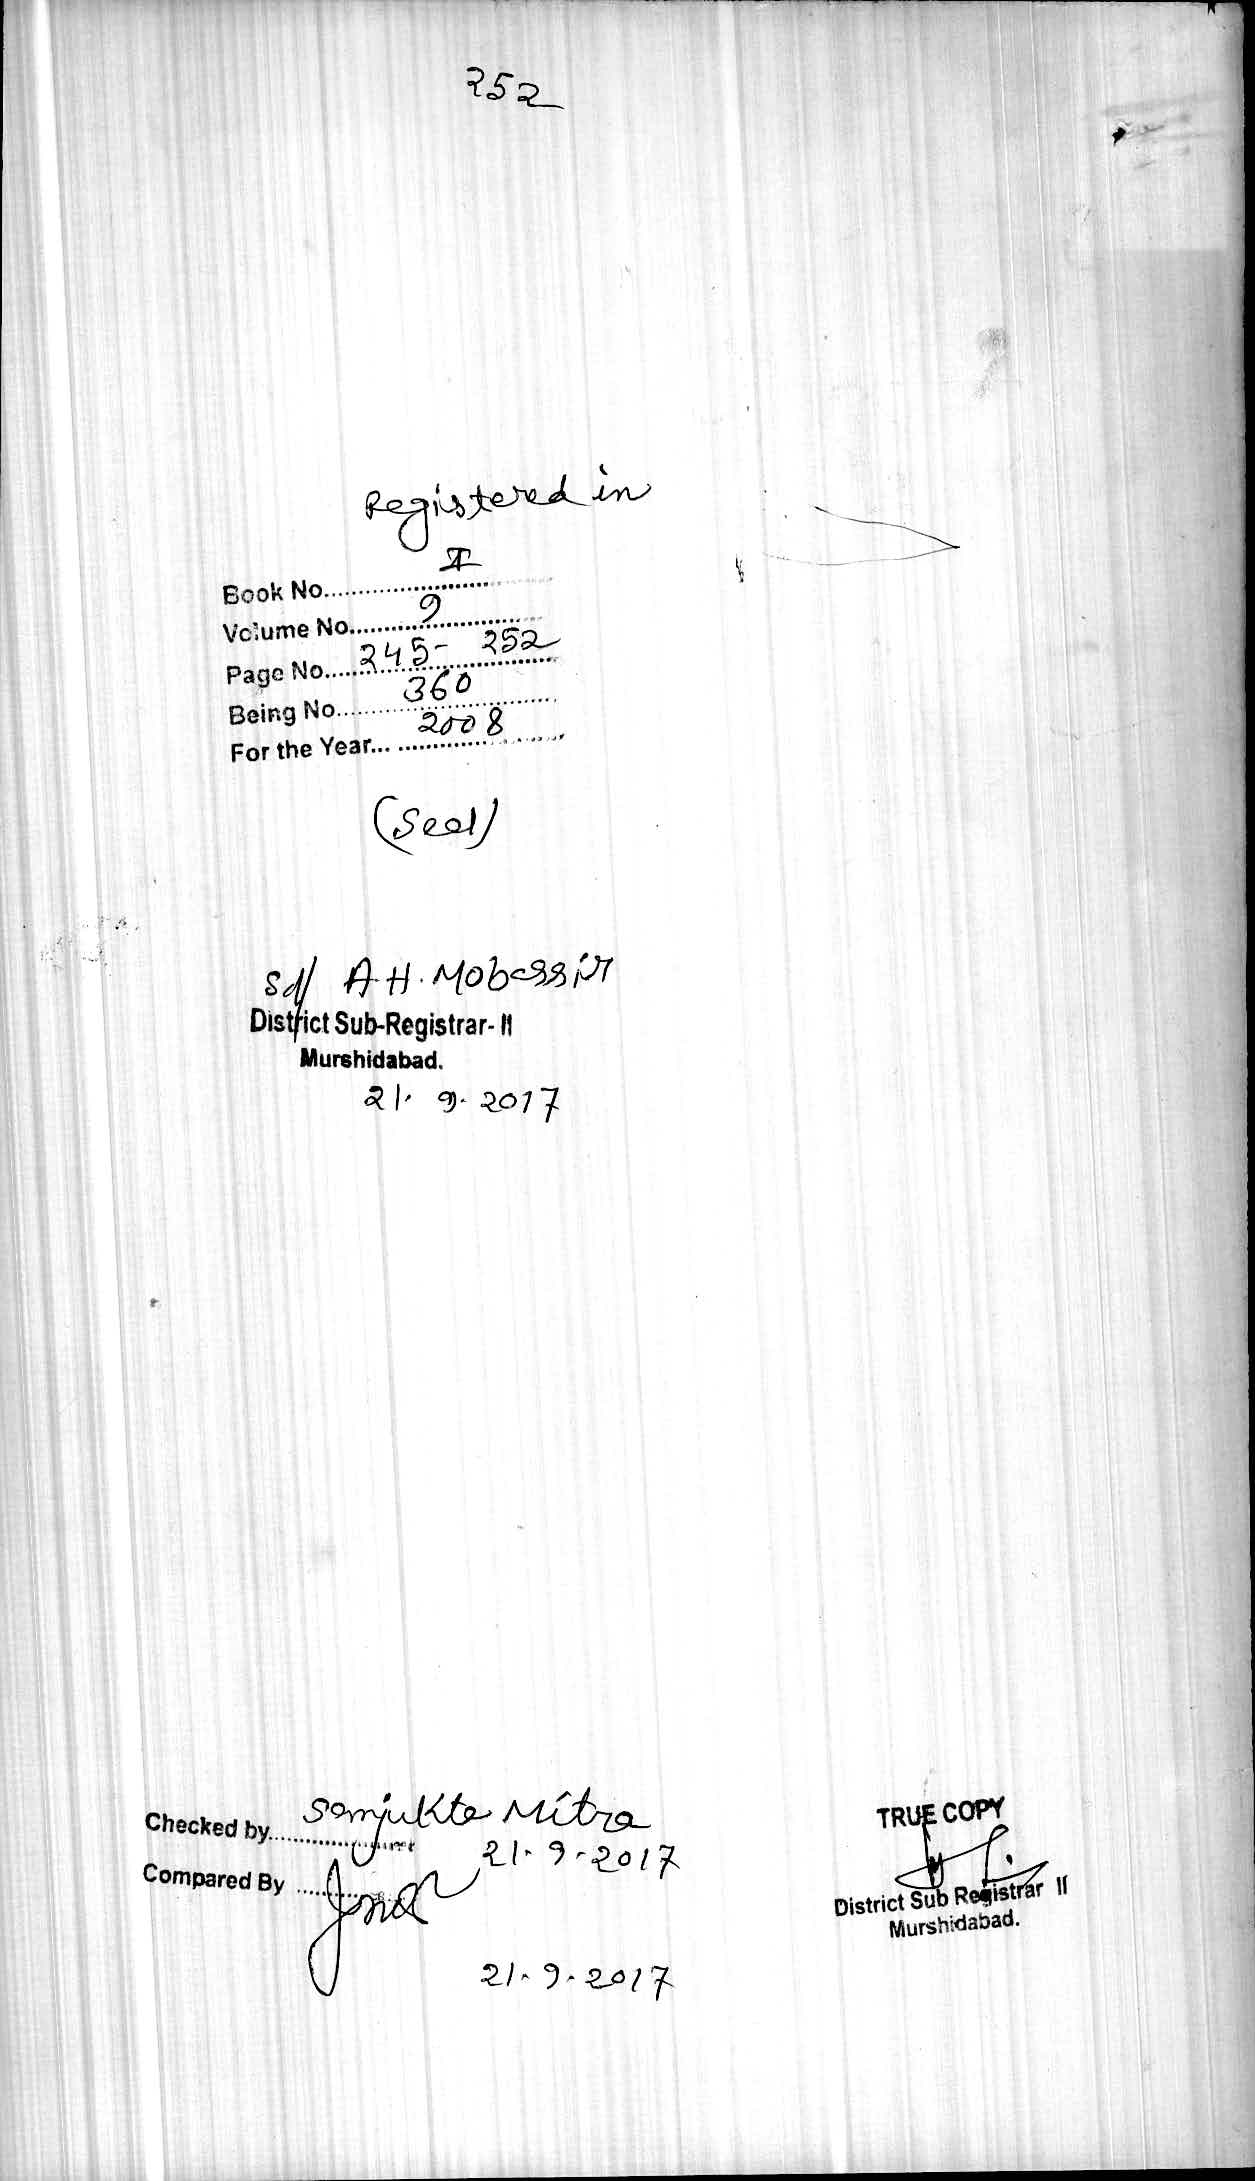 252
Registered in
Book No. I
Volume No. 9
Page No. 245- 252
Being No. 360
For the Year... 2008
(Seal)
Sd/ A.H. Mobassir
District Sub-Registrar- II
Murshidabad.
21. 9. 2017
Checked by Samjukta Mitra
21. 9. 2017
Compared By
21. 9. 2017
TRUE COPY
District Sub Registrar II
Murshidabad.